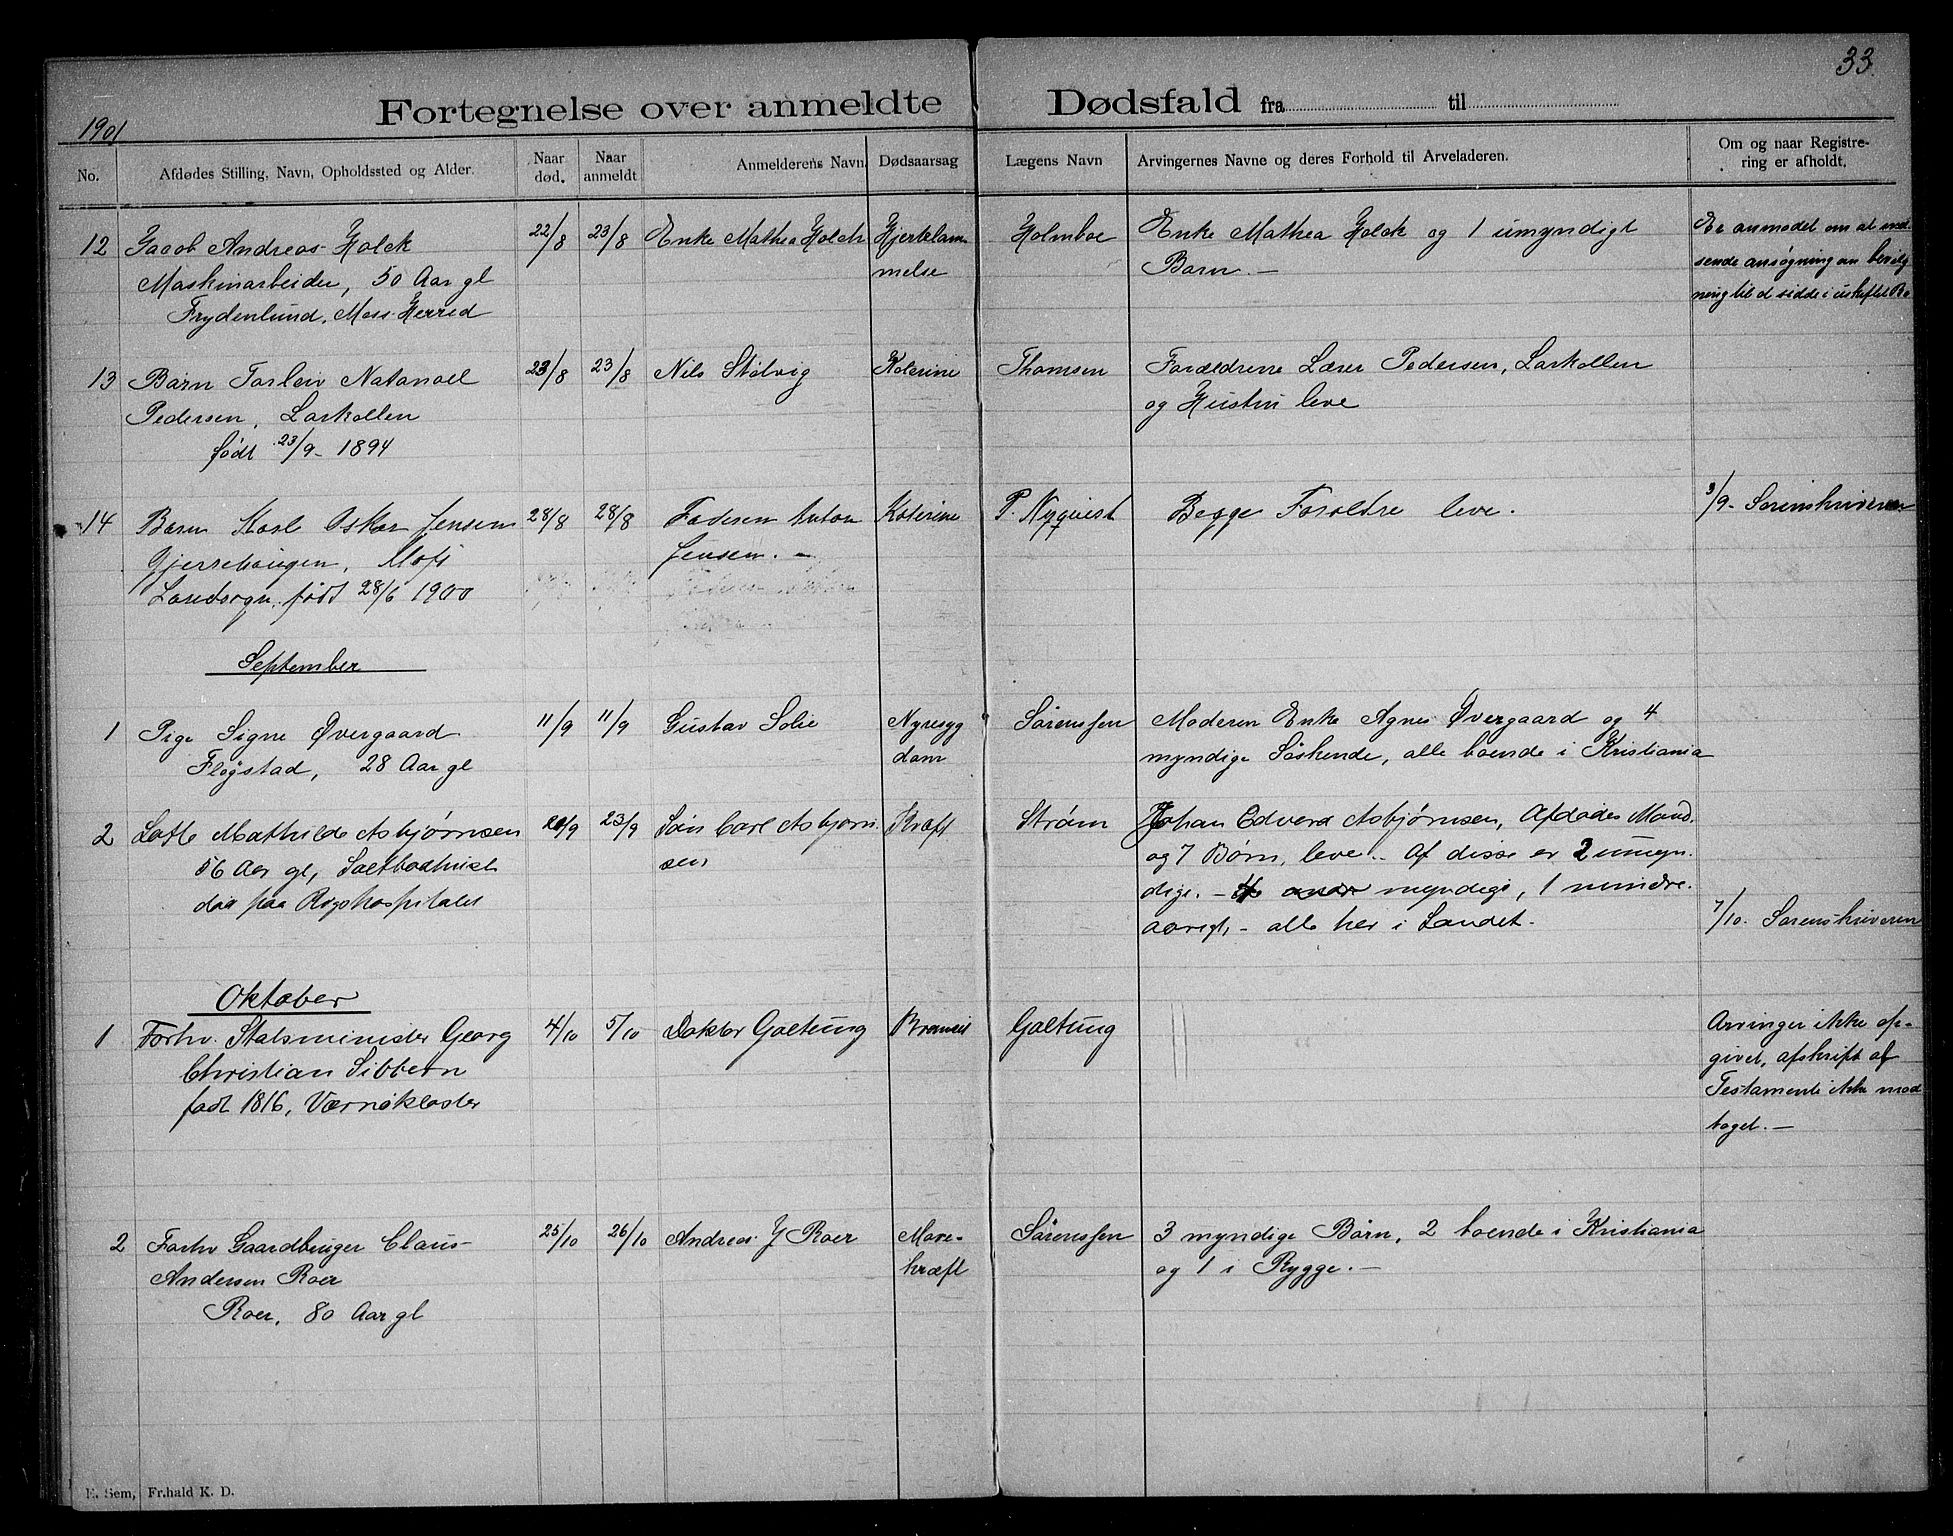 33.
Fortegnelse over anmeldte Dødsfald fra til
1901
No. Afdødes Stilling, Navn, Opholdssted og Alder. Naar død. Naar anmeldt Anmelderens Navn. Dødsaarsag Lægens Navn Arvingernes Navne og deres Forhold til Arveladeren. Om og naar Registrering er afholdt.
12 Jacob Andreas Holck 22/8 23/8 Enke Mathea Holck Hjertelam Holmboe Enke Mathea Holck og 1 umyndigt Er anmodet om at ind
Maskinarbeider, 50 Aar gl melse Barn. — sende ansøgning om bevilg
Frydenlund, Moss Herred ning til at sidde i uskiftet Bo
13 Barn Torleiv Natanael 23/8 23/8 Nils Stolvig Kolerine Thomsen Forældrene Lærer Pedersen, Larkollen
Pedersen, Larkollen og Hustru leve
født 23/9- 1894
14 Barn Karl Oskar Jensen 28/8 28/8 Faderen Anton Kolerine P. Nyquist Begge Foreldre leve. 3/9- Sorenskriveren
Gjerrehaugen, Moss Jensen. —
Landsogn. født 28/6 1900
September
1 Pige Signe Øvergaard 11/9 11/9 Gustav Solie Nyresyg Sørenssen Moderen Enke Agnes Øvergaard og 4
Fløgstad, 28 Aar gl dom myndige Søskende, alle boende i Kristiania
2 Lotte Mathilde Asbjørnsen 20/9 23/9 Søn Carl Asbjørn Kræft Strøm Johan Edvard Asbjørnsen, Afdødes Mand.
56 Aar gl, Saltbodhvile sen og 7 Børn, leve.. Af disse er 2 umyn.
død paa Rigshospitalet dige. - 4 myndige, 1 mindre.
aarigt, - alle her i Landet. 7/10. Sorenskriveren
Oktober
1 Forhv. Statsminister Georg 4/10 5/10 Doktor Galtung Galtung Arvinger ikke op-
Christian Sibbern givet, afskrift af
født 1816, Værnekloster Testamente ikke mod
taget. —
2 Forhv Gaardbruger Claus 25/10 26/10 Andreas J Roer Mave- Sørenssen 3 myndige Børn, 2 boende i Kristiania
Andersen Roer kræft og 1 i Rygge. —
Roer, 80 Aar gl
E. Sem, Fr.hald K. D.